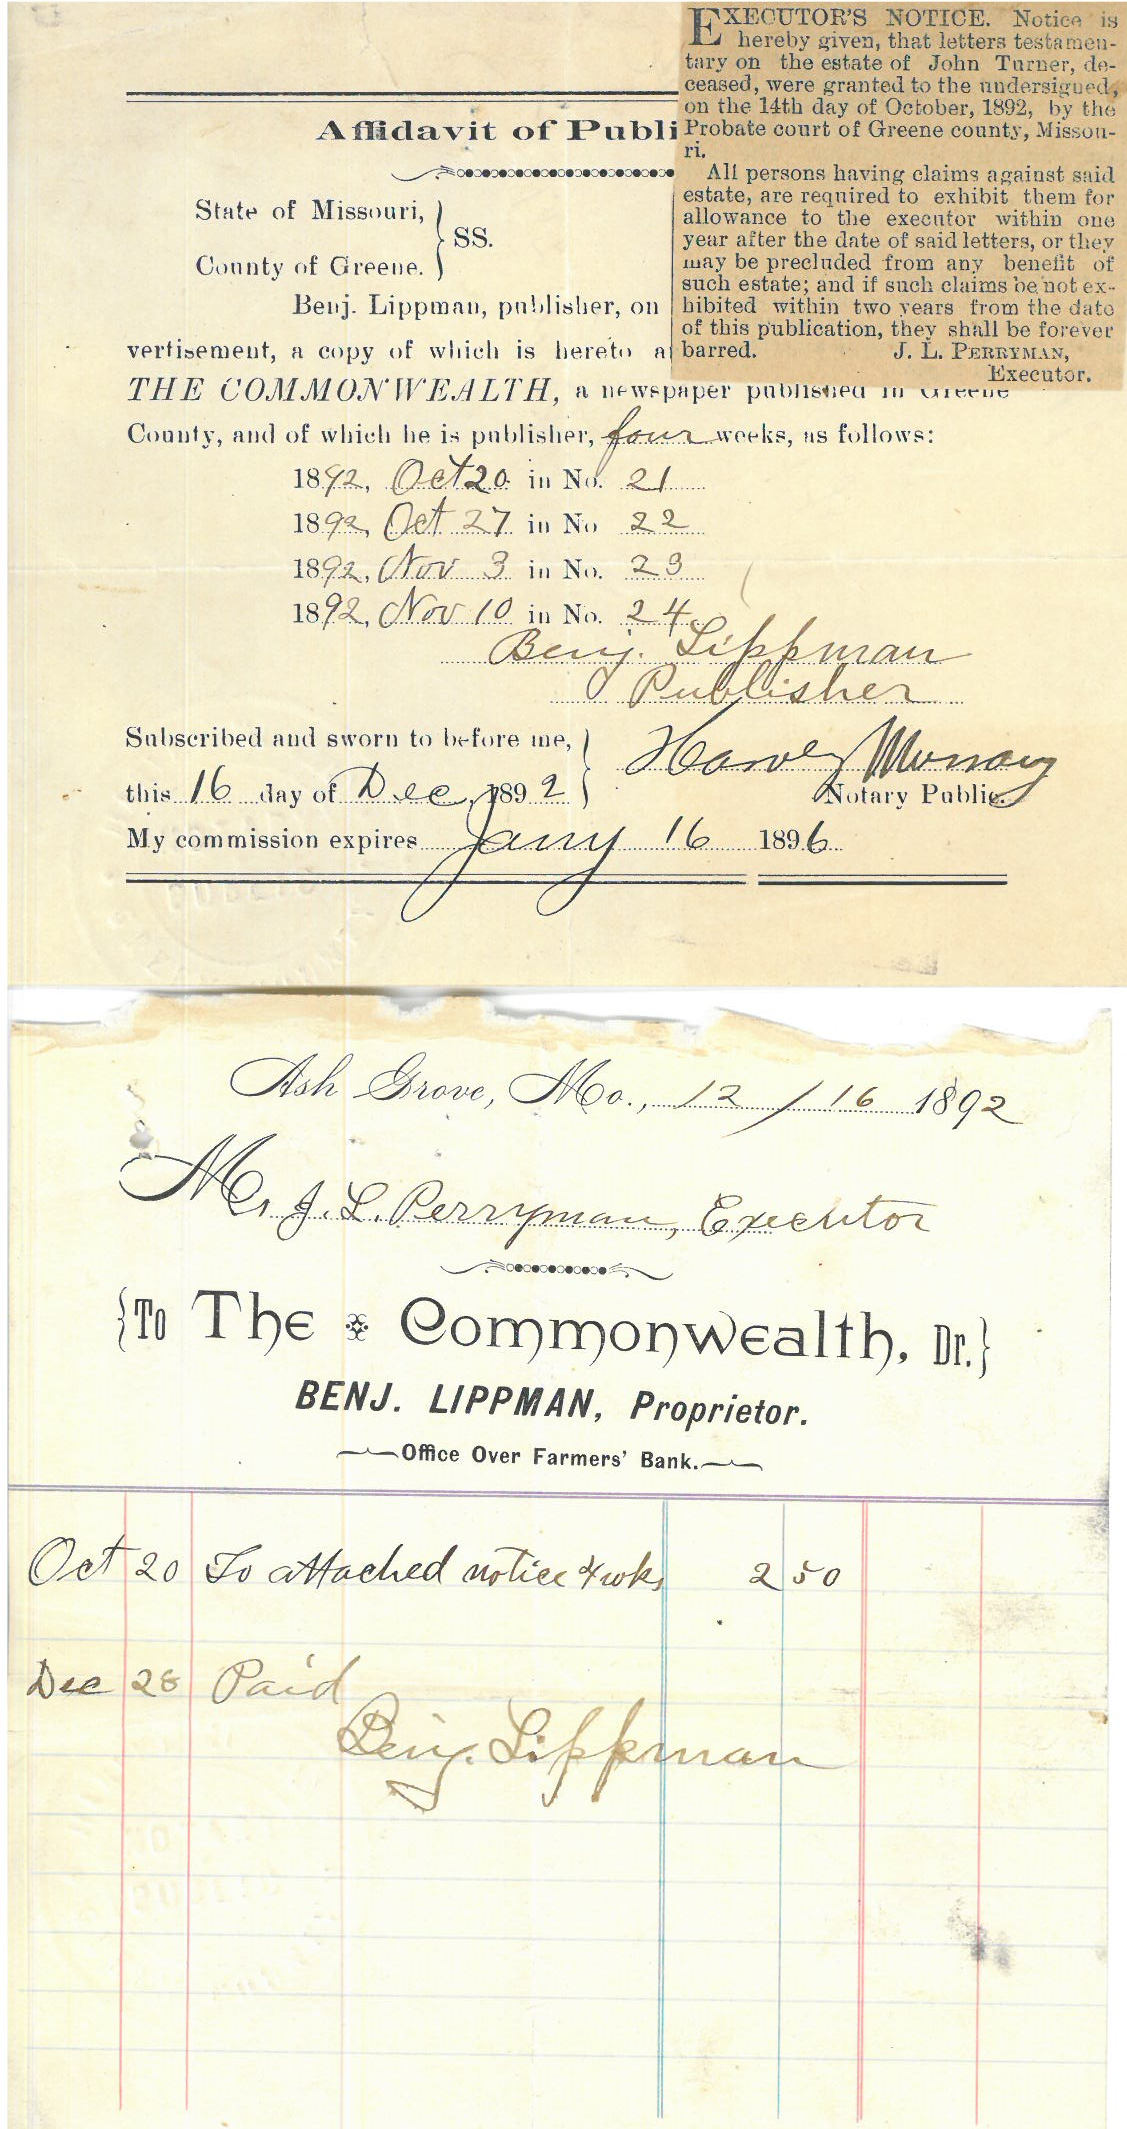 EXECUTOR'S NOTICE. Notice is
hereby given, that letters testamen-
tary on the estate of John Turner, de-
ceased, were granted to the undersigned,
on the 14th day of October, 1892, by the
Probate court of Greene county, Missou-
ri.
All persons having claims against said
estate, are required to exhibit them for
allowance to the executor within one
year after the date of said letters, or they
may be precluded from any benefit of
such estate; and if such claims be not ex-
hibited within two years from the date
of this publication, they shall be forever
barred. J. L. PERRYMAN,
Executor.
Affidavit of Publi
State of Missouri,
SS.
County of Greene.
Benj. Lippman, publisher, on
vertisement, a copy of which is hereto a
THE COMMONWEALTH, a newspaper published in Greene
County, and of which he is publisher, four weeks, as follows:
1892, Oct 20 in No. 21
1892, Oct 27 in No 22
1892, Nov 3 in No. 23
1892, Nov 10 in No. 24
Benj. Lippman
Publisher
Subscribed and sworn to before me,
this 16 day of Dec, 1892
Harvey Murray
Notary Public.
My commission expires Jany 16 1896
Ash Grove, Mo., 12/16 1892
M J. L. Perryman, Executor
{To The Commonwealth, Dr.}
BENJ. LIPPMAN, Proprietor.
Office Over Farmers' Bank.
Oct 20 To attached notice 4 wks 2 50
Dec 28 Paid
Benj. Lippman